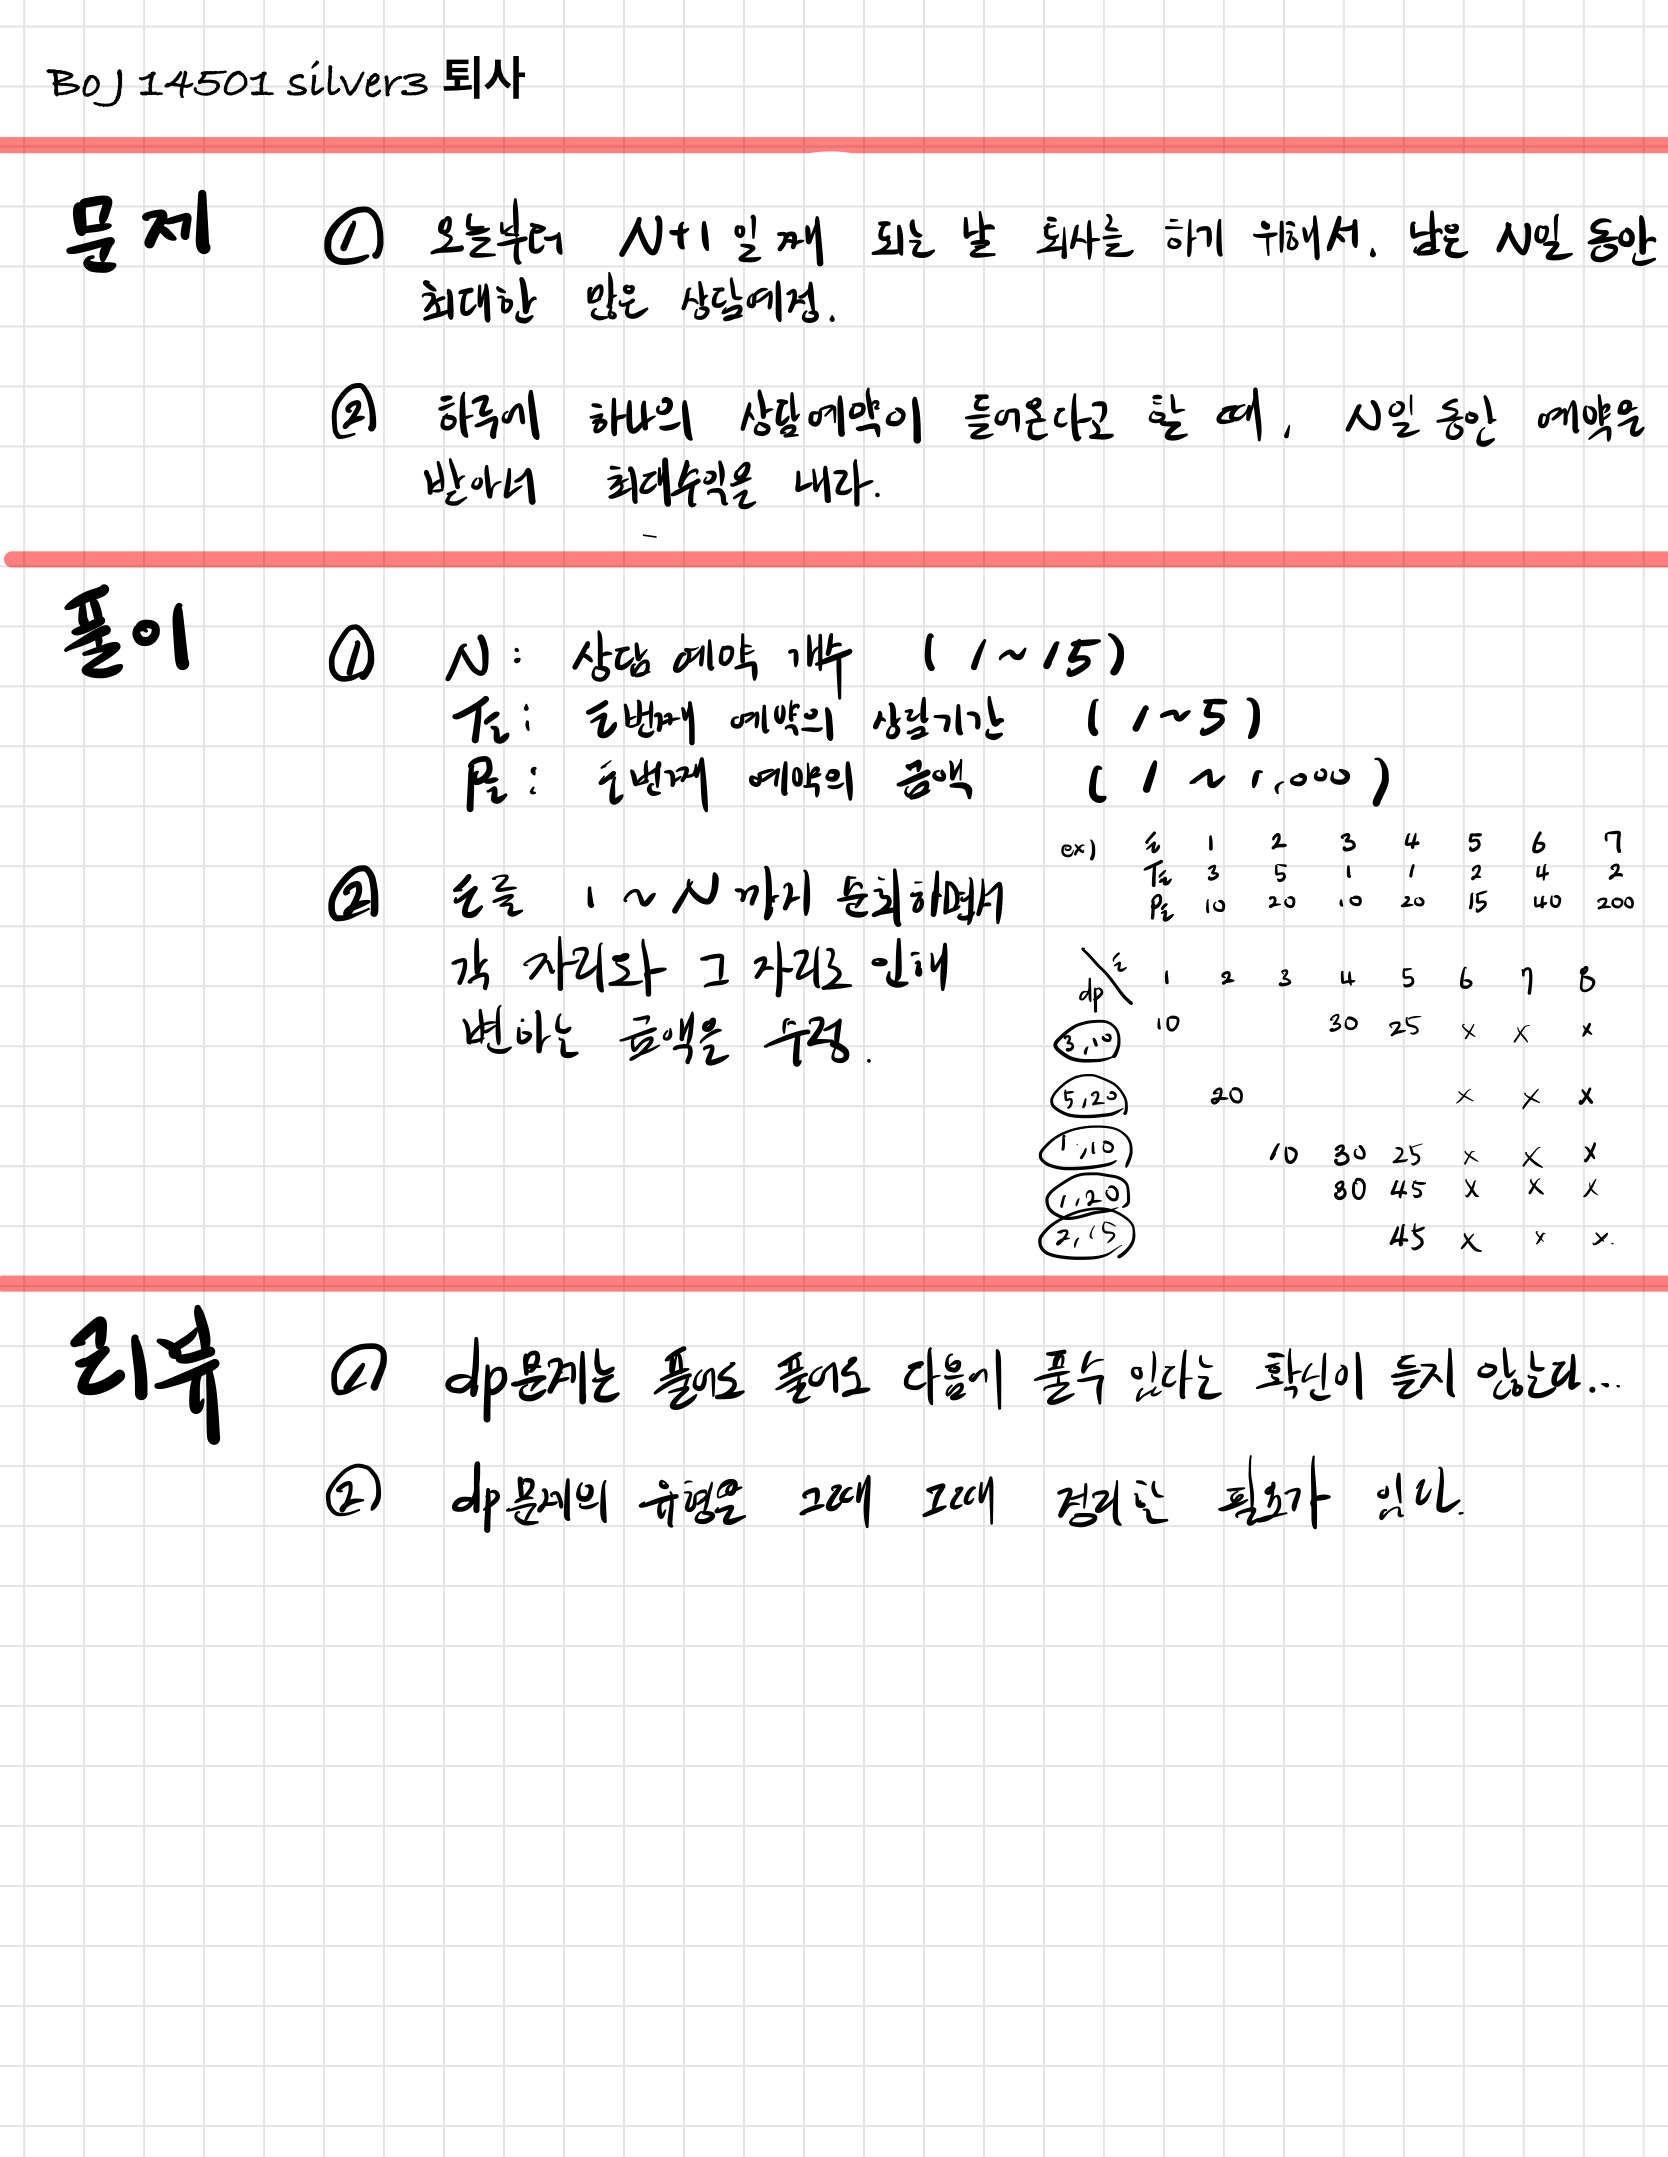 BOJ 14501 silver3 퇴사
문제
① 오늘부터 N+1일째 되는 날 퇴사를 하기 위해서, 남은 N일 동안
최대한 많은 상담예정.
② 하루에 하나의 상담예약이 들어온다고 할 때, N일 동안 예약을
받아서 최대수익을 내라.
풀이
① N : 상담 예약 개수 (1~15)
Ti : i번째 예약의 상담기간 (1~5)
Pi : i번째 예약의 금액 (1~1,000)
② i를 1~N까지 순회하면서
각 자리와 그 자리로 인해
변하는 금액을 수정.
ex) i 1 2 3 4 5 6 7
Ti 3 5 1 1 2 4 2
Pi 10 20 10 20 15 40 200
dp \ i 1 2 3 4 5 6 7 8
3,10 10 30 25 x x x
5,20 20 x x x
1,10 10 30 25 x x x
1,20 30 45 x x x
2,15 45 x x x.
리뷰
① dp문제는 풀어도 풀어도 다음에 풀수 있다는 확신이 들지 않는다...
② dp문제의 유형을 그때 그때 정리할 필요가 있다.